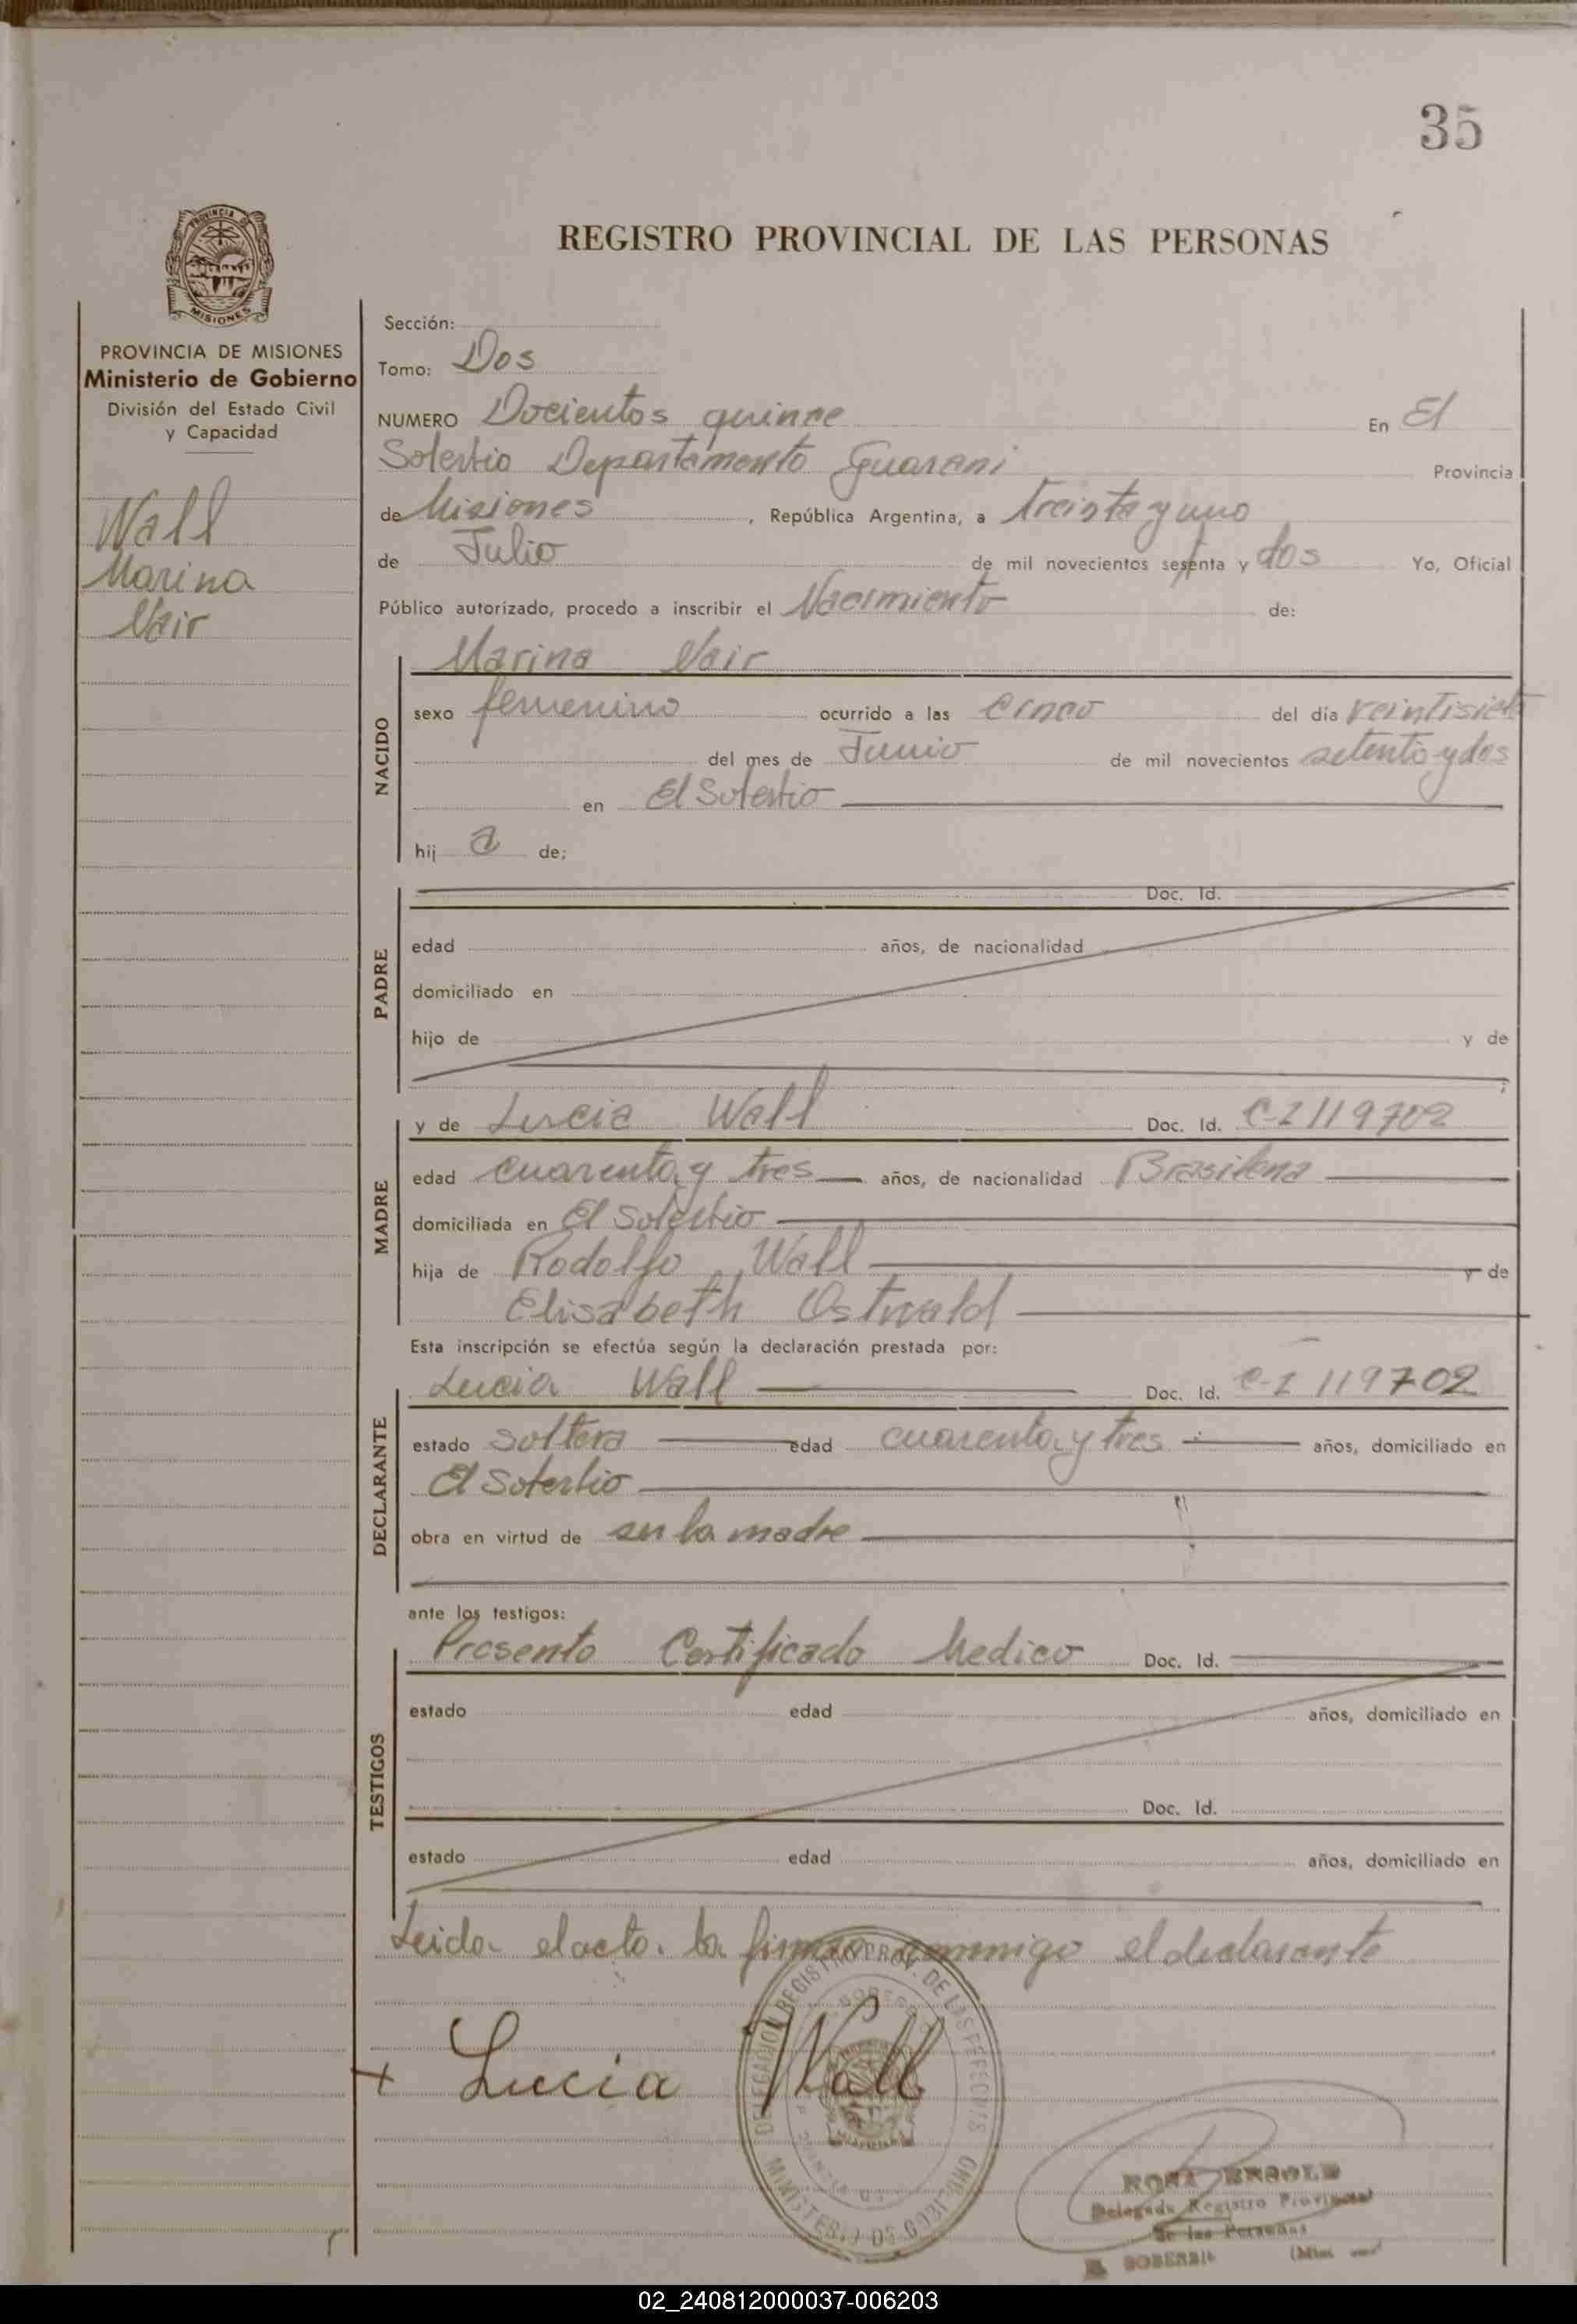 35
REGISTRO PROVINCIAL DE LAS PERSONAS
PROVINCIA DE MISIONES
Ministerio de Gobierno
División del Estado Civil
y Capacidad
Wall
Marina
Nair
Sección:
Tomo: Dos
NUMERO Docientos quince En El
Soberbio Departamento Guarani Provincia
de Misiones, República Argentina, a treinta y uno
de Julio de mil novecientos sesenta y dos Yo, Oficial
Público autorizado, procedo a inscribir el Nacimiento de:
NACIDO
Marina Nair
sexo femenino ocurrido a las cinco del día veintisiete
del mes de Junio de mil novecientos setenta y dos
en El Soberbio
hij a de;
PADRE
Doc. Id.
edad años, de nacionalidad
domiciliado en
hijo de y de
;
MADRE
y de Lucia Wall Doc. Id. C-I 119702
edad cuarenta y tres años, de nacionalidad Brasilena
domiciliada en El Soberbio
hija de Rodolfo Wall y de
Elisabeth Ostwald
Esta inscripción se efectúa según la declaración prestada por:
DECLARANTE
Lucia Wall Doc. Id. C-I 119702
estado soltera edad cuarenta y tres años, domiciliado en
El Soberbio
obra en virtud de ser la madre
ante los testigos:
TESTIGOS
Presento Certificado Medico Doc. Id.
estado edad años, domiciliado en
Doc. Id.
estado edad años, domiciliado en
Leida el acta. la firma conmigo el declarante
+ Lucia Wall
DELEGACION REGISTRO PROV. DE LAS PERSONAS
MINISTERIO DE GOBIERNO
ROSA
Delegada Registro Provincial
de las Personas
EL SOBERBIO
02_240812000037-006203